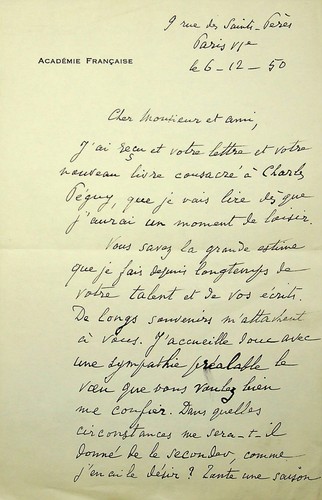 9 rue des Saints-Pères
Paris VIe
ACADÉMIE FRANÇAISE
le 6-12-50
Cher Monsieur et ami,
J'ai reçu et votre lettre et votre
nouveau livre consacré à Charles
Péguy, que je vais lire dès que
j'aurai un moment de loisir.
Vous savez la grande estime
que je fais depuis longtemps de
votre talent et de vos écrits.
De longs souvenirs m'attachent
à vous. J'accueille donc avec
une sympathie préalable le
vœu que vous voulez bien
me confier. Dans quelles
circonstances me sera-t-il
donné de le seconder, comme
j'en ai le désir ? Toute une saison